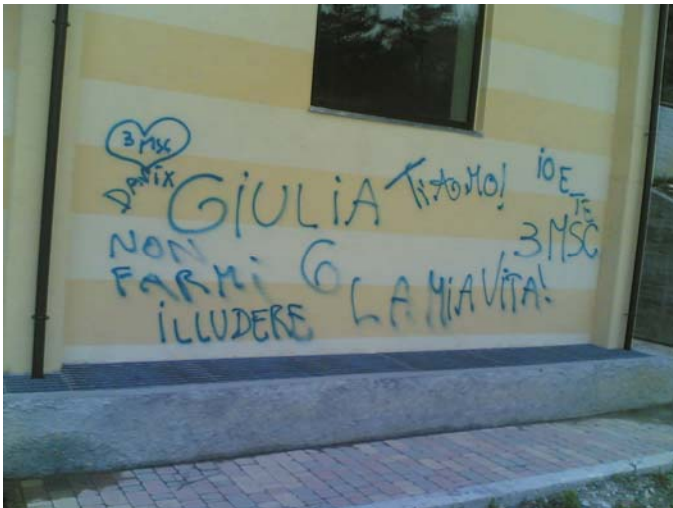 3 MSC
DAMIX
GIULIA TI AMO!
IO E TE
3MSC
NON
FARMI
ILLUDERE
6 LA MIA VITA!